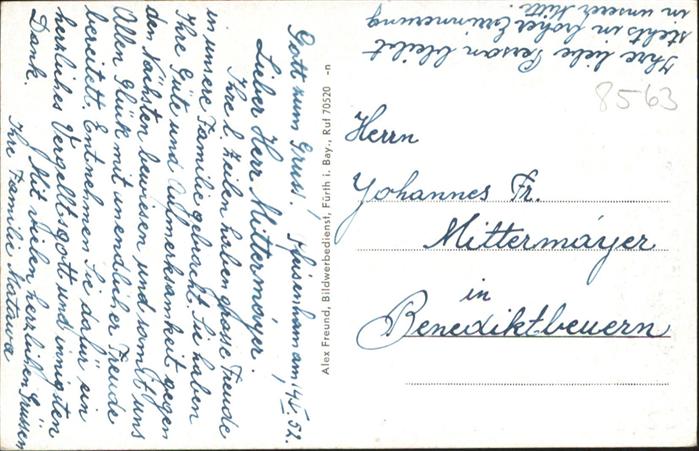 Gott zum Gruss! am 14.V.52.
Lieber Herr Mittermáyer.
Ihre l. Zeilen haben grosse Freude
in unsere Familie gebracht. Sie haben
Ihre Güte und Aufmerksamkeit gegen
den Nächsten bewiesen und somit uns
Allen Glück mit unendlicher Freude
bereitett. Entnehmen Sie dafür ein
herzliches Vergellts gott und innigsten
Dank. Mit vielen herzlichen Grüssen
Ihre Familie
Ihre liebe Person bleibet
stehts in hoher Erinnerung
in unserer Mitte.
Alex Freund, Bildwerbedienst, Fürth i. Bay., Ruf 70520 -n
8563
Herrn
Johannes Fr.
Mittermáyer
in
Benediktbeuern